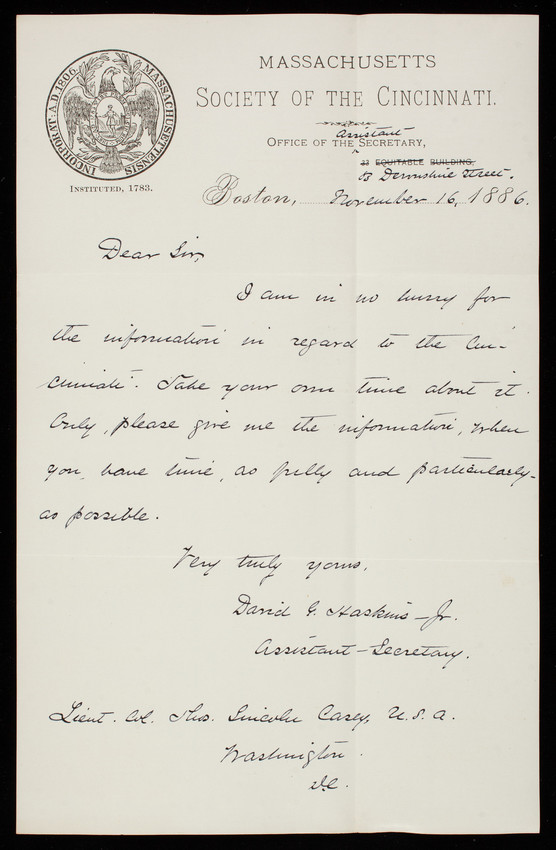 INCORPORAT: A.D. 1806. MASSACHUSETTENSIS
INSTITUTED, 1783.
MASSACHUSETTS
SOCIETY OF THE CINCINNATI.
Assistant
OFFICE OF THE SECRETARY,
33 EQUITABLE BUILDING.
53 Devonshire Street.
Boston, November 16, 1886.
Dear Sir,
I am in no hurry for
the information in regard to the Cin-
cinnati. Take your own time about it.
Only, please give me the information, when
you have time, as fully and particularly
as possible.
Very truly yours,
David G. Haskins Jr.
Assistant-Secretary.
Lieut. Col. Thos. Lincoln Casey, U.S.A.
Washington
D.C.